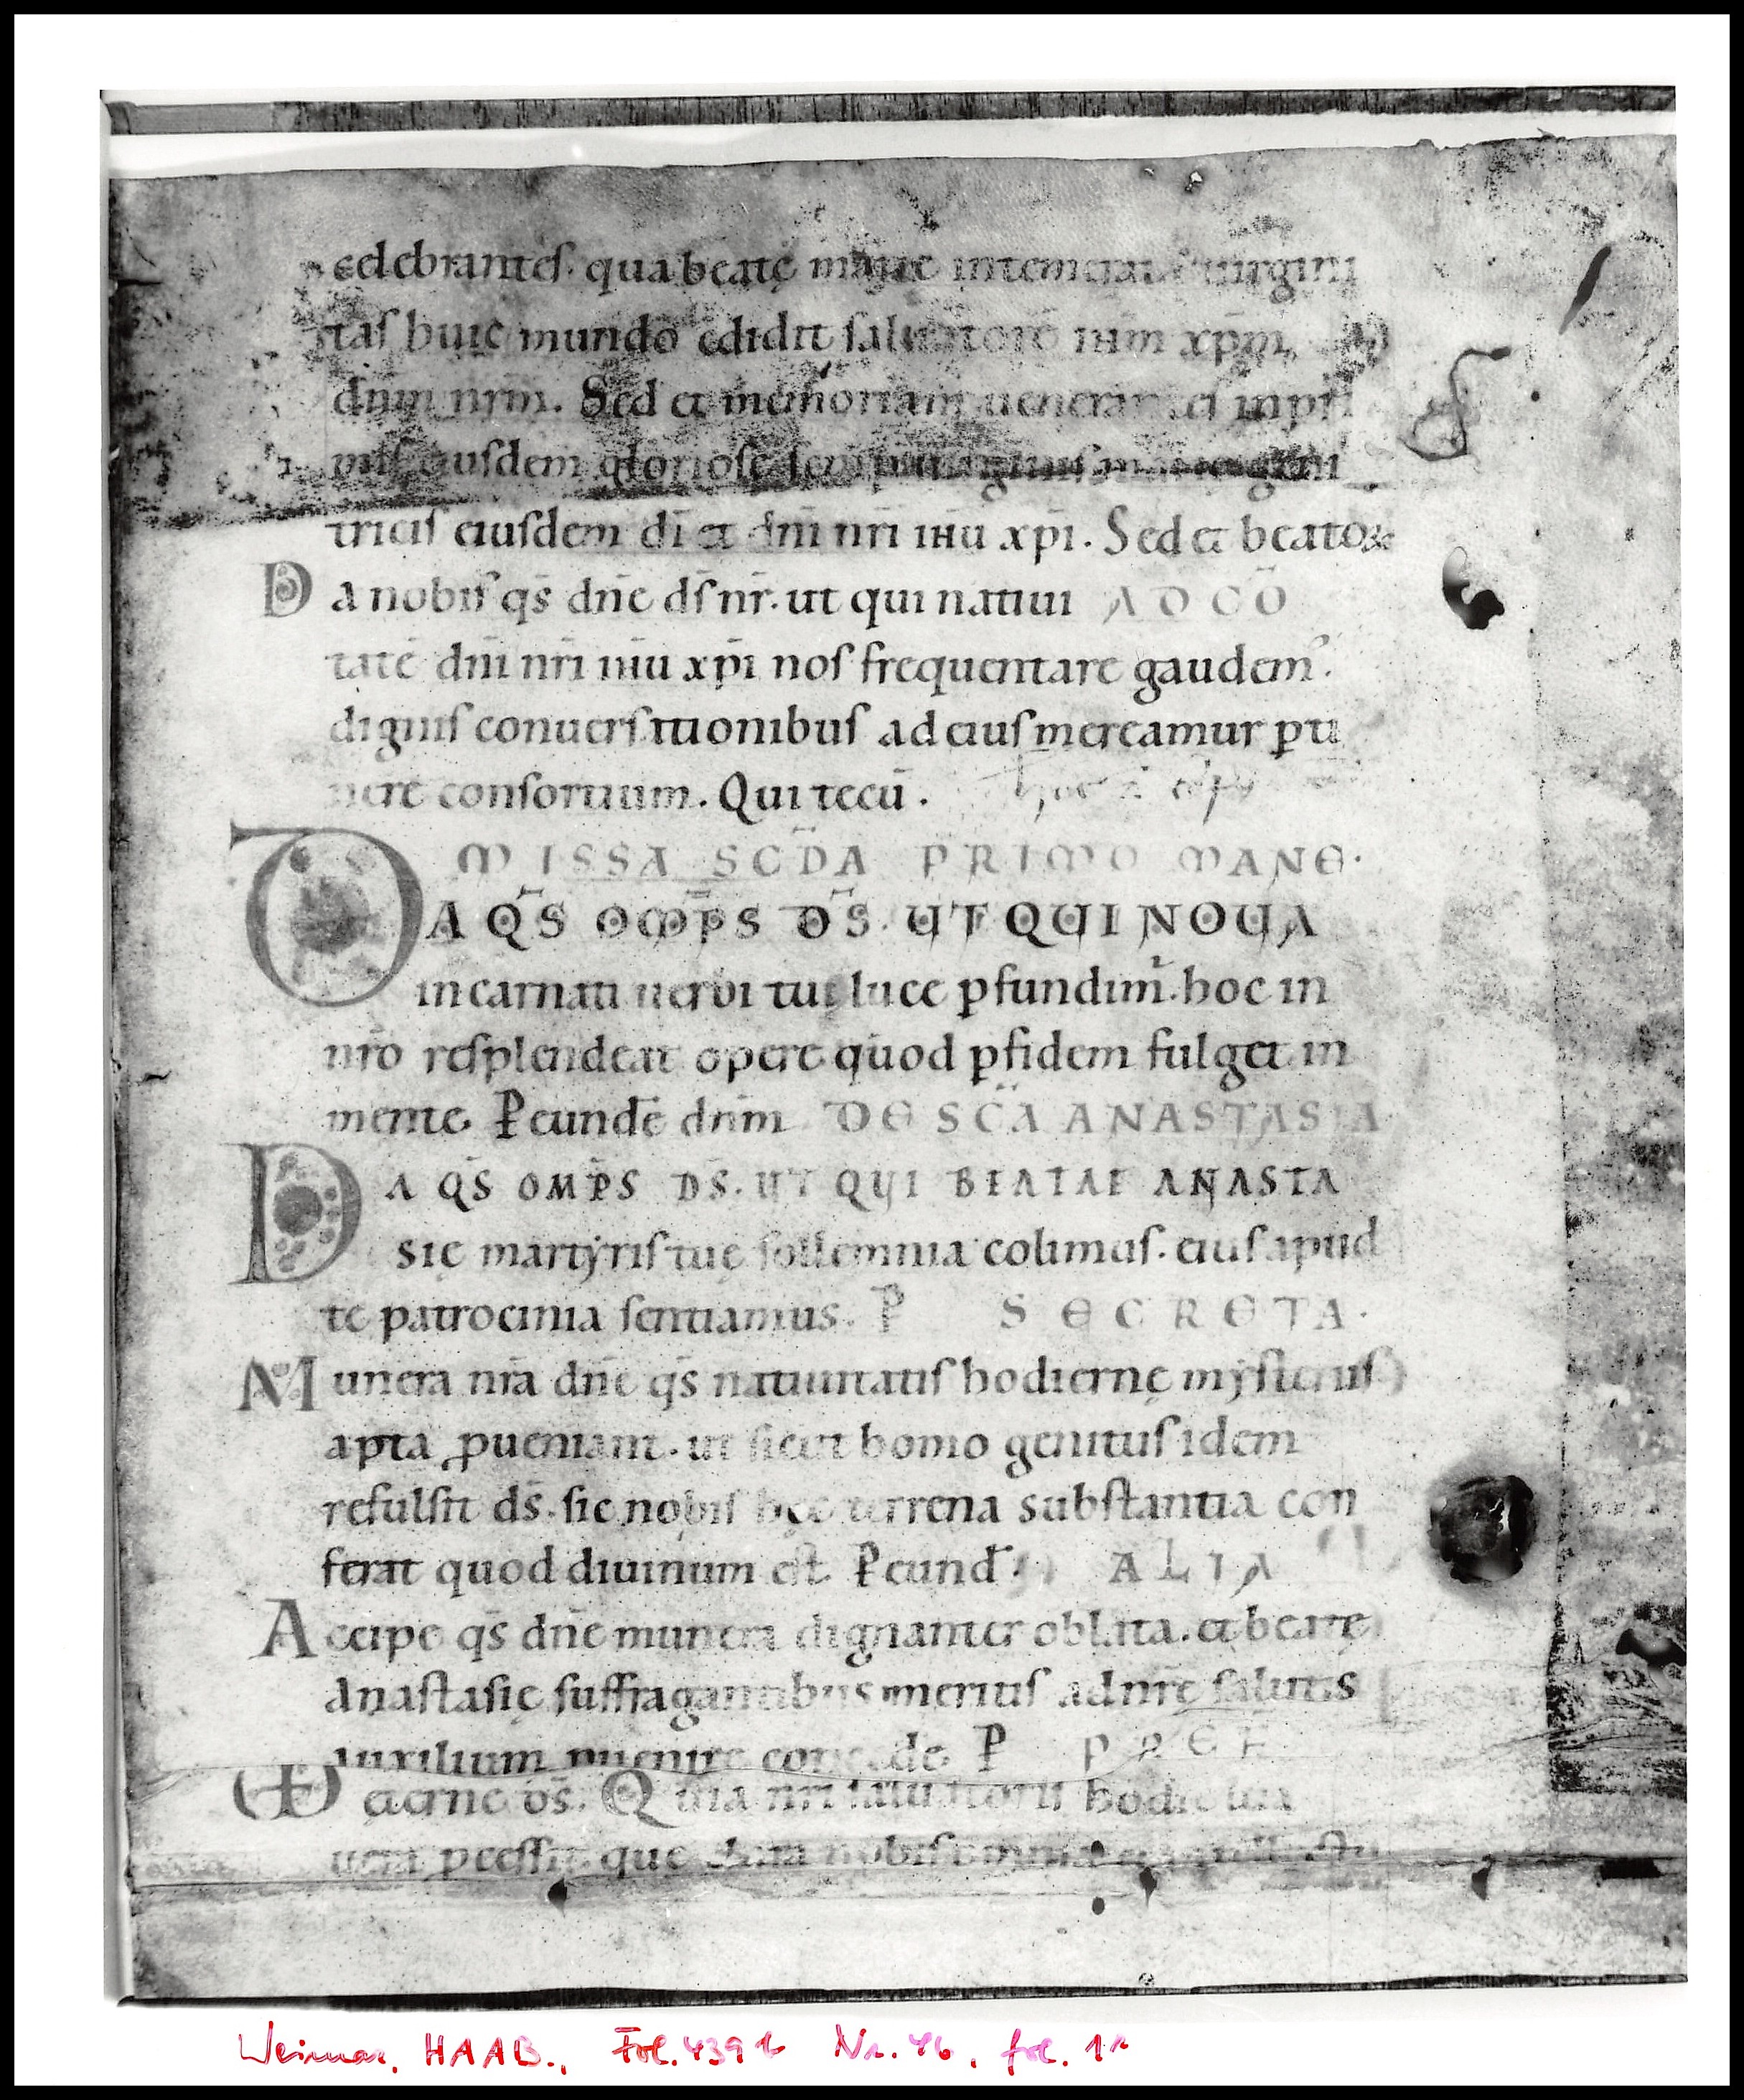 celebrantes. qua beatę marię intemerata uirgini
tas huic mundo edidit saluatorē ihm̄ xp̄m
dn̄m nr̄m. Sed et memoriam uenerantes inpri
mis eiusdem gloriosę semp uirginis geni
tricis eiusdem dī et dn̄i nr̄i ihū xp̄i. Sed et beatoꝝ
Da nobis qs̄ dn̄e ds̄ nr̄. ut qui natiui AD CŌ
tatē dn̄i nr̄i ihū xp̄i nos frequentare gaudem᾽.
dignis conuersationibus ad eius mereamur ꝑti
nere consortium. Qui tecū.
MISSA SCD̄A PRIMO MANE.
DA QS̄ OMP̄S DS̄. UT QUI NOUA
incarnati uerbi tui luce ꝑfundim᾽. hoc in
nr̄o resplendeat opere quod ꝑ fidem fulget in
mente. P eundē dn̄m DE SCĀ ANASTASIA
DA QS̄ OMP̄S DS̄. UT QUI BEATAE ANASTA
się martyris tuę sollemnia colimus. eius apud
te patrocinia sentiamus. P SECRETA.
Munera nr̄a dn̄e qs̄ natiuitatis hodiernę mysteriis
apta ꝓueniant. ut sicut homo genitus idem
refulsit ds̄. sic nobis hęc terrena substantia con
ferat quod diuinum est. P eund̄. ALIA
Accipe qs̄ dn̄e munera dignanter oblata. et beatę
Anastasię suffragantibus meritis ad nr̄ę salutis
auxilium puenire concede. P PREF
aeterne ds̄. Quia nr̄i saluatoris hodie lux
uera pcessit. que clara nobis omnia
Weimar, HAAB., Fol. 439 b Nr. 46, fol. 1r